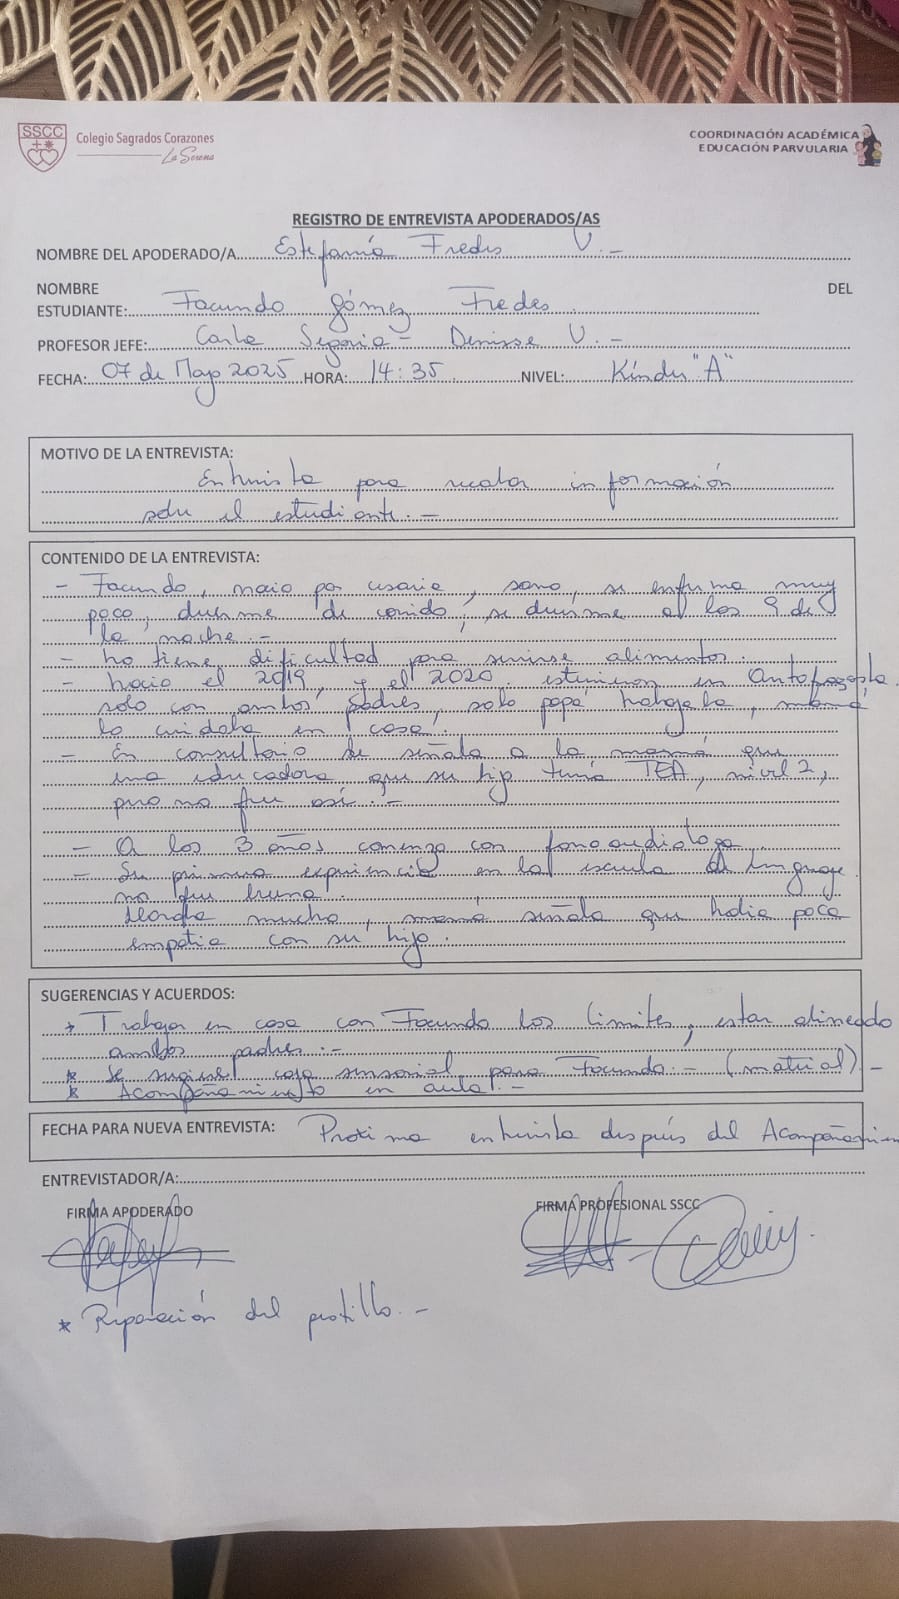 SSCC
Colegio Sagrados Corazones
La Serena
COORDINACIÓN ACADÉMICA
EDUCACIÓN PARVULARIA
REGISTRO DE ENTREVISTA APODERADOS/AS
NOMBRE DEL APODERADO/A Estefanía Fredes V.-
NOMBRE DEL
ESTUDIANTE: Facundo Gómez Fredes
PROFESOR JEFE: Carla Segovia - Denisse V.-
FECHA: 07 de Mayo 2025 HORA: 14:35 NIVEL: Kínder "A"
MOTIVO DE LA ENTREVISTA:
Entrevista para recabar información
sobre el estudiante.-
CONTENIDO DE LA ENTREVISTA:
- Facundo, nació por cesarie, sano, se enferma muy
poco, duerme de corrido, se duerme a las 9 de
la noche.-
- no tiene dificultad para servirse alimentos.
- nació el 2019, y el 2020 estuvieron en Antofagasta.
solo con ambos padres, solo papá trabajaba, mamá
lo cuidaba en casa.
- En consultorio se señala a la mamá que
una educadora que su hijo tenía TEA, nivel 2,
pero no fue así.-
- A los 3 años comenzo con fonoaudiologa.
- Su primera experiencia en la escuela de lenguaje
no fue buena.
lloraba mucho, mamá señala que había poca
empatia con su hijo.
SUGERENCIAS Y ACUERDOS:
Trabajar en casa con Facundo los limites, estar alineado
ambos padres.-
* Se sugiere caja sensorial para Facundo.- (material).-
* Acompañamiento en aula.-
FECHA PARA NUEVA ENTREVISTA: Proxima entrevista después del
ENTREVISTADOR/A:
FIRMA APODERADO FIRMA PROFESIONAL SSCC
* Reparación del pestillo.-